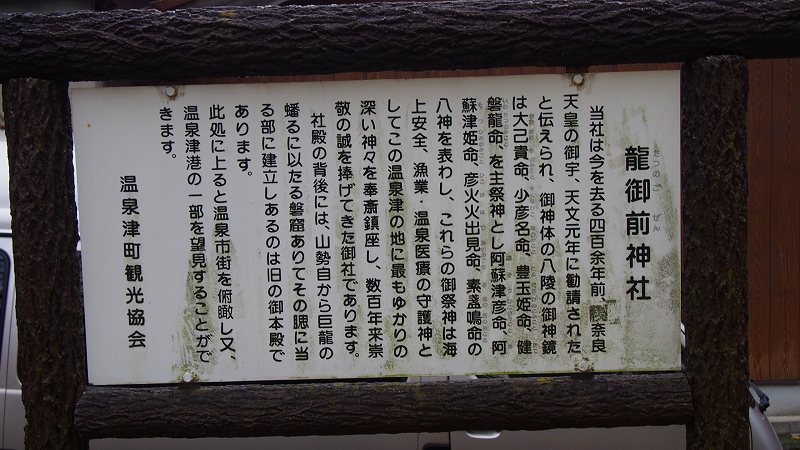 龍御前神社
当社は今を去る四百余年前、後奈良
天皇の御宇、天文元年に勧請された
と伝えられ、御神体の八陵の御神鏡
は大己貴命、少彦名命、豊玉姫命、健
磐龍命、を主祭神とし阿蘇津彦命、阿
蘇津姫命、彦火火出見命、素盞鳴命の
八神を表わし、これらの御祭神は海
上安全、漁業・温泉医療の守護神と
してこの温泉津の地に最もゆかりの
深い神々を奉斎鎮座し、数百年来崇
敬の誠を捧げてきた御社であります。
社殿の背後には、山勢自から巨龍の
蟠るに以たる磐窟ありてその腮に当
る部に建立しあるのは旧の御本殿で
あります。
此処に上ると温泉市街を俯瞰し又、
温泉津港の一部を望見することがで
きます。
温泉津町観光協会